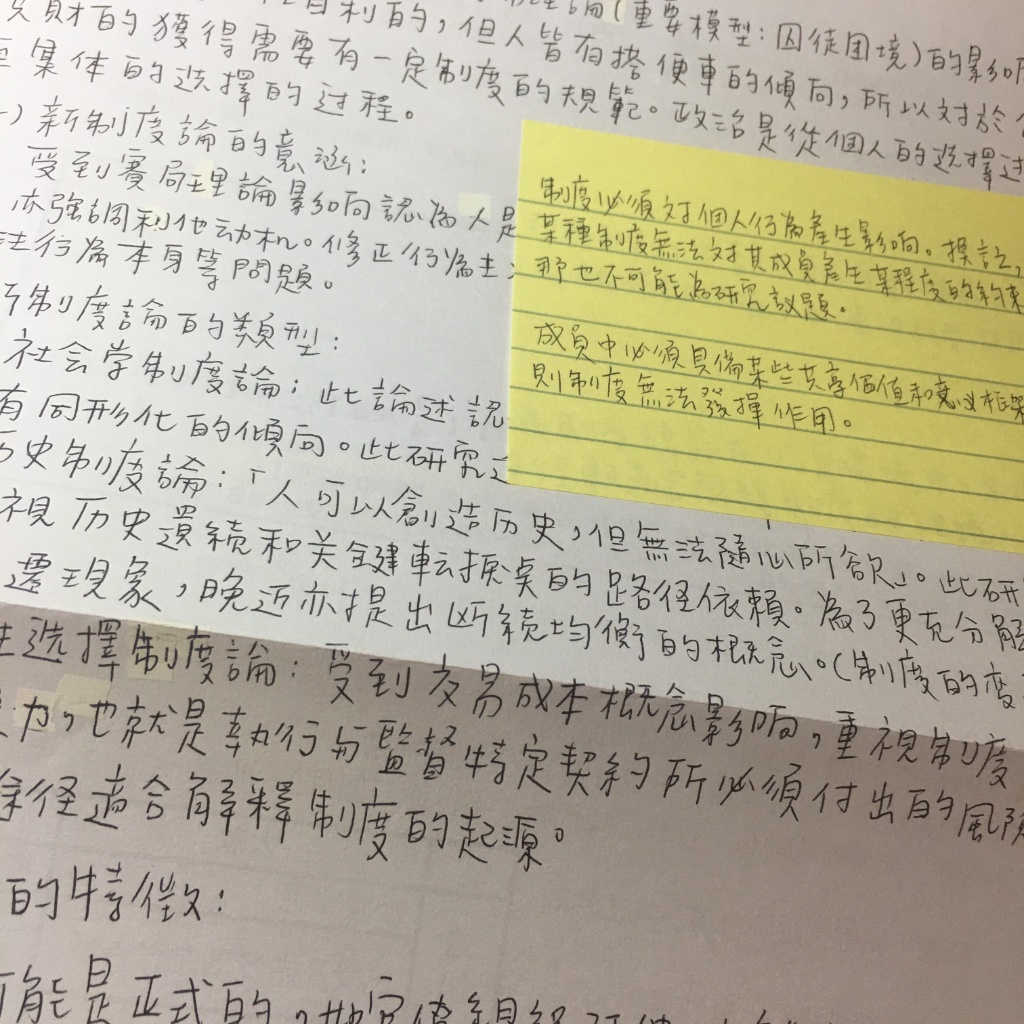 理論(重要模型:囚徒困境)的影响
財的獲得需要有一定制度的規範。政治是從個人的选擇过
自利的,但人皆有搭便車的傾向,所以对於
集体的选擇的过程。
新制度論的意涵:
受到賽局理論影响認為人是
亦強調利他动机。修正行為主
行為本身等問題。
制度論的類型:
社会学制度論:此論述認
有同形化的傾向。此研究
历史制度論:「人可以創造历史,但無法隨心所欲」。此研
視历史遺緒和关鍵転捩点的路径依賴。為了更充分解
遷現象,晚近亦提出断続均衡的概念。(制度的変
选擇制度論:受到交易成本概念影响,重視制度
力,也就是執行与監督特定契約所必須付出的風險
途径適合解釋制度的起源。
的特徵:
可能是正式的,
制度必須对個人行為產生影响。換言
某種制度無法对其成員產生某程度的約束
那也不可能為研究議題。
成員中必須具備某些共享価值和意义框架
則制度無法發揮作用。